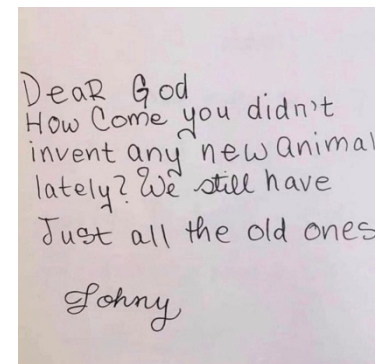 DeaR God
How Come you didn't
invent any new animal
lately? We still have
Just all the old ones
Johny